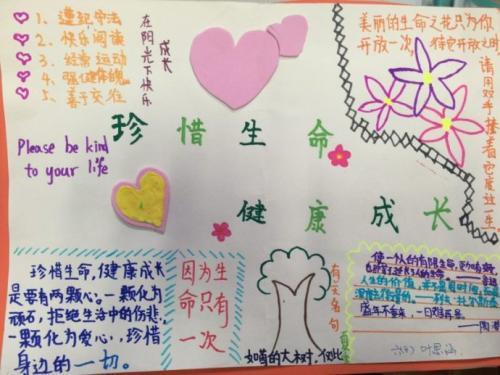 1、遵纪守法
2、快乐阅读
3、经常运动
4、强健体魄
5、善于交往
在阳光下快乐
成长
美丽的生命之花只为你
开放一次
请用双手捧着它度过一生
珍惜生命
Please be kind
to your life
健康成长
珍惜生命,健康成长
是要有两颗心:一颗化为
顽石,拒绝生活中的伤悲,
一颗化为爱心,珍惜
身边的一切.
因为生
命只有
一次
有关名句
使一个人的有限生命,更加有效
人生的价值,并不是用时间,而是
盛年不重来,一日难再晨.